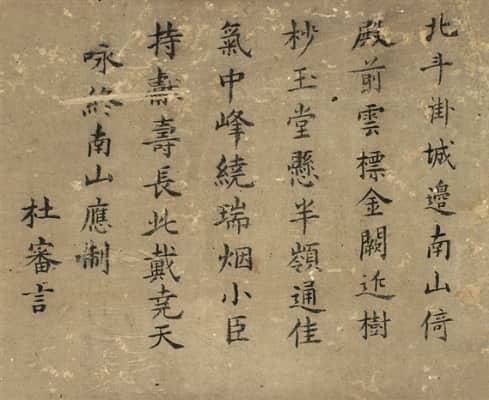 北斗掛城邉南山倚
殿前雲標金闕迥樹
杪玉堂懸半嶺通佳
氣中峰繞瑞烟小臣
持獻壽長此戴堯天
咏終南山應制
杜審言